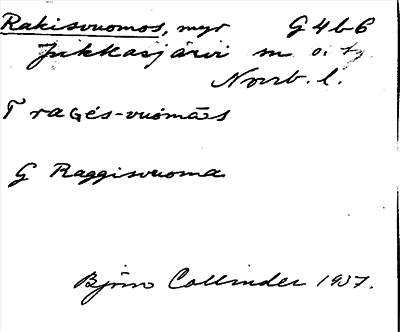 Rakisvuomos, myr G4b6
Jukkasjärvi sn o. tg
Norrb. l.
T ragés-vuómās
G Raggisvuoma
Björn Collinder 1937.